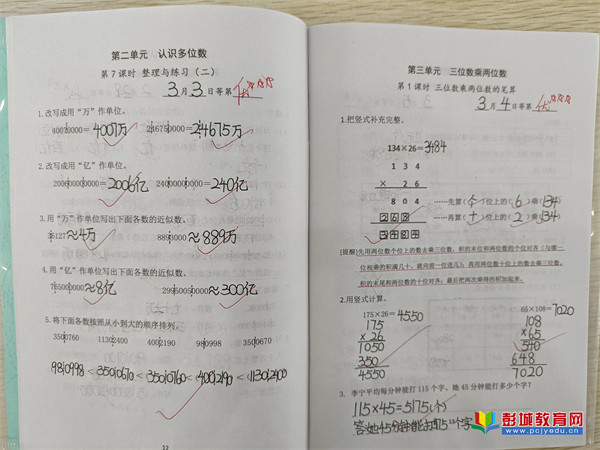 第二单元 认识多位数
第7课时 整理与练习（二）
3月3日等第 优
1.改写成用“万”作单位。
40070000=4007万 246750000=24675万
2.改写成用“亿”作单位。
200600000000=2006亿 24000000000=240亿
3.用“万”作单位写出下面各数的近似数。
36127≈4万 8890000≈889万
4.用“亿”作单位写出下面各数的近似数。
≈8亿 29965005000≈300亿
5.将下面各数按照从小到大的顺序排列。
3500760 11302400 4002190 980998 3500670
980998<3500670<3500760<4002190<11302400
12
第三单元 三位数乘两位数
第1课时 三位数乘两位数的笔算
3月4日等第 优
1.把竖式补充完整。
134×26=3484
1 3 4
× 2 6
8 0 4 ……先算(个)位上的(6)乘(134)
2 6 8 ……再算(十)位上的(2)乘(134)
3 4 8 4
[提醒]先用两位数个位上的数去乘三位数，积的末位和两位数的个位对齐（与哪一
位相乘的积满几十，就向前一位进几）；再用两位数十位上的数去乘三位数，
积的末尾和两位数的十位对齐；最后把两次乘得的积加起来。
2.用竖式计算。
175×26=4550 65×108=7020
175 108
×26 ×65
1050 540
350 648
4550 7020
3. 李宁平均每分钟能打115个字，她45分钟能打多少个字？
115×45=5175(个)
答:她45分钟能打5175个字
彭城教育网
www.pcjyedu.cn